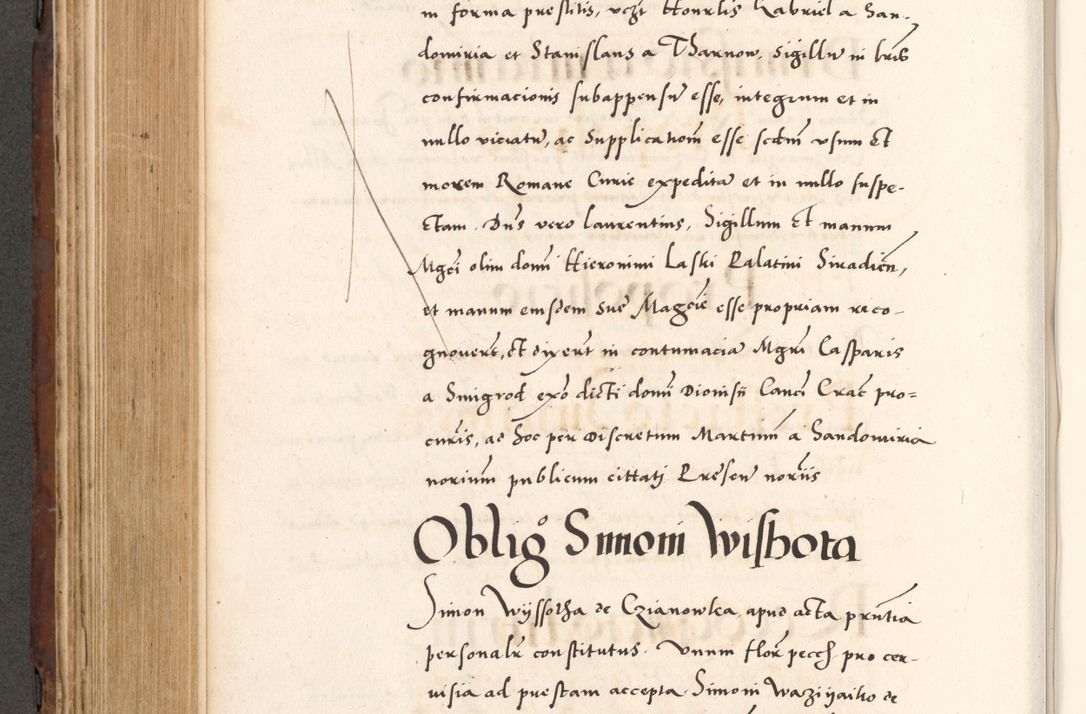 in forma prestitis, vczt Honrlis Gabriel a San-
domiria et Stanislaus a Tharnow, sigillu in bris
confirmacionis subappensu esse, integrum et in
nullo viciatu, ac supplicationi esse scdm vsum et
morem Romane Curie expedita et in nullo suspe-
ctam. Dns vero laurentius, Sigillum et manum
Mgci olim domi Hieronimi Laski Palatini Siradien,
et manum eiusdem sue Magcie esse propriam reco-
gnouert, et dixerut in contumacia Mgri Casparis
a Smigrod exo dicti domi Dionisii Canci Crac pro=
curis, ac hoc per Discretum Martinu a Sandomiria
norium publicum cittati Presen noriis
Oblig Simoni Wishota
Simon Wyssotha de Czianowka apud acta pruntia
personalr constitutus. Vnum flor pecch pro cer-
uisia ad puestam accepta Simoni de